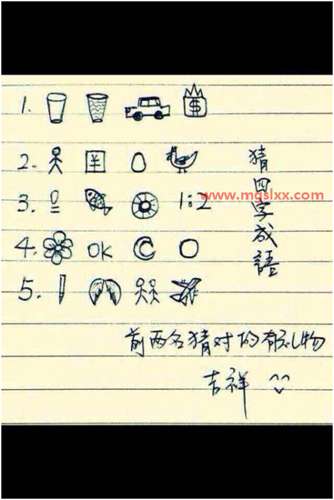 1.
2.
3. 1:2
4. OK C O
5.
猜四字成語
www.mgslxx.com
前两名猜对的有礼物
吉祥 ^^